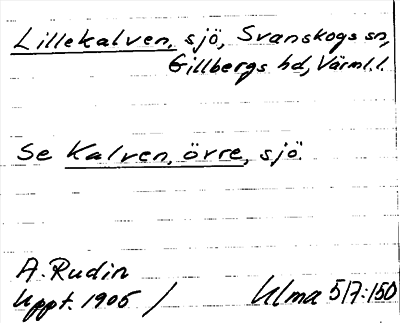 Lillekalven, sjö, Svanskogs sn,
Gillbergs hd, Värml.l.
Se Kalven, övre, sjö.
A. Rudin
Uppt. 1905 / Ulma 517:150